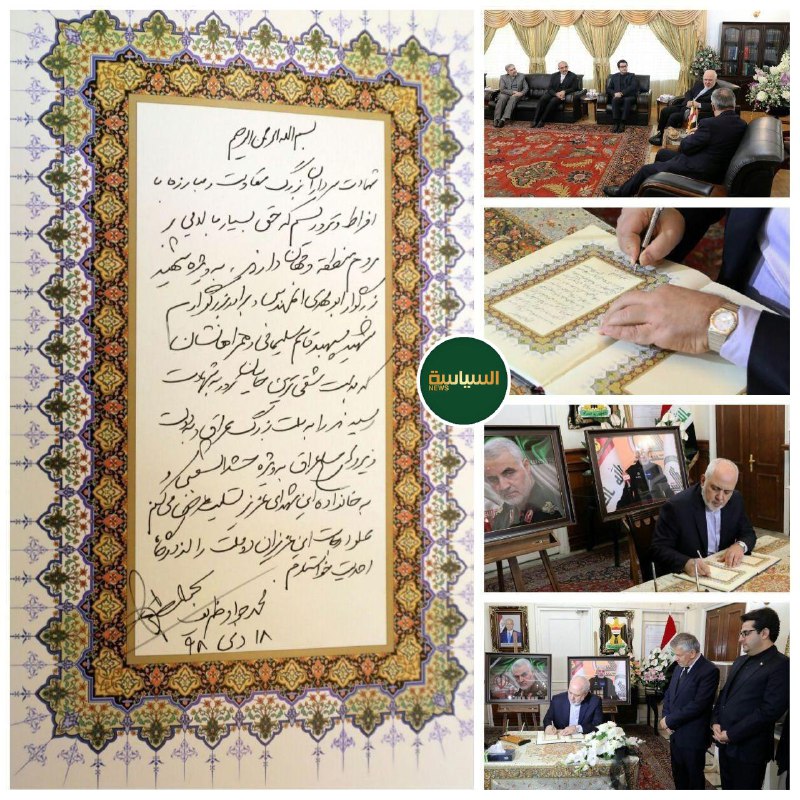 بسم الله الرحمن الرحیم
شهادت سرداران بزرگ مقاومت و مبارزه با
افراط و تروریسم که حقی بسیار بر
مردم منطقه و جهان دارند، به ویژه شهید
بزرگوار ابومهدی المهندس و برادر بزرگوارم
شهید سپهبد قاسم سلیمانی و همراهانشان
که بدست شقی ترین به شهادت
رسیدند را به ملت بزرگ عراق و دولت
عراق به ویژه حشد الشعبی و
به خانواده این شهدای عزیز تسلیت عرض می کنم
علو درجات این عزیزان دو ملت را از درگاه
احدیت خواستارم
محمد جواد ظریف
۱۸ دی ۹۸
السياسية
NEWS